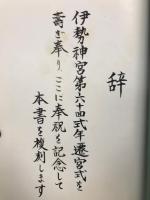 辞
伊勢神宮第六十四式年遷宮式を
壽ぎ奉り、ここに奉祝を記念して
本書を複刻します